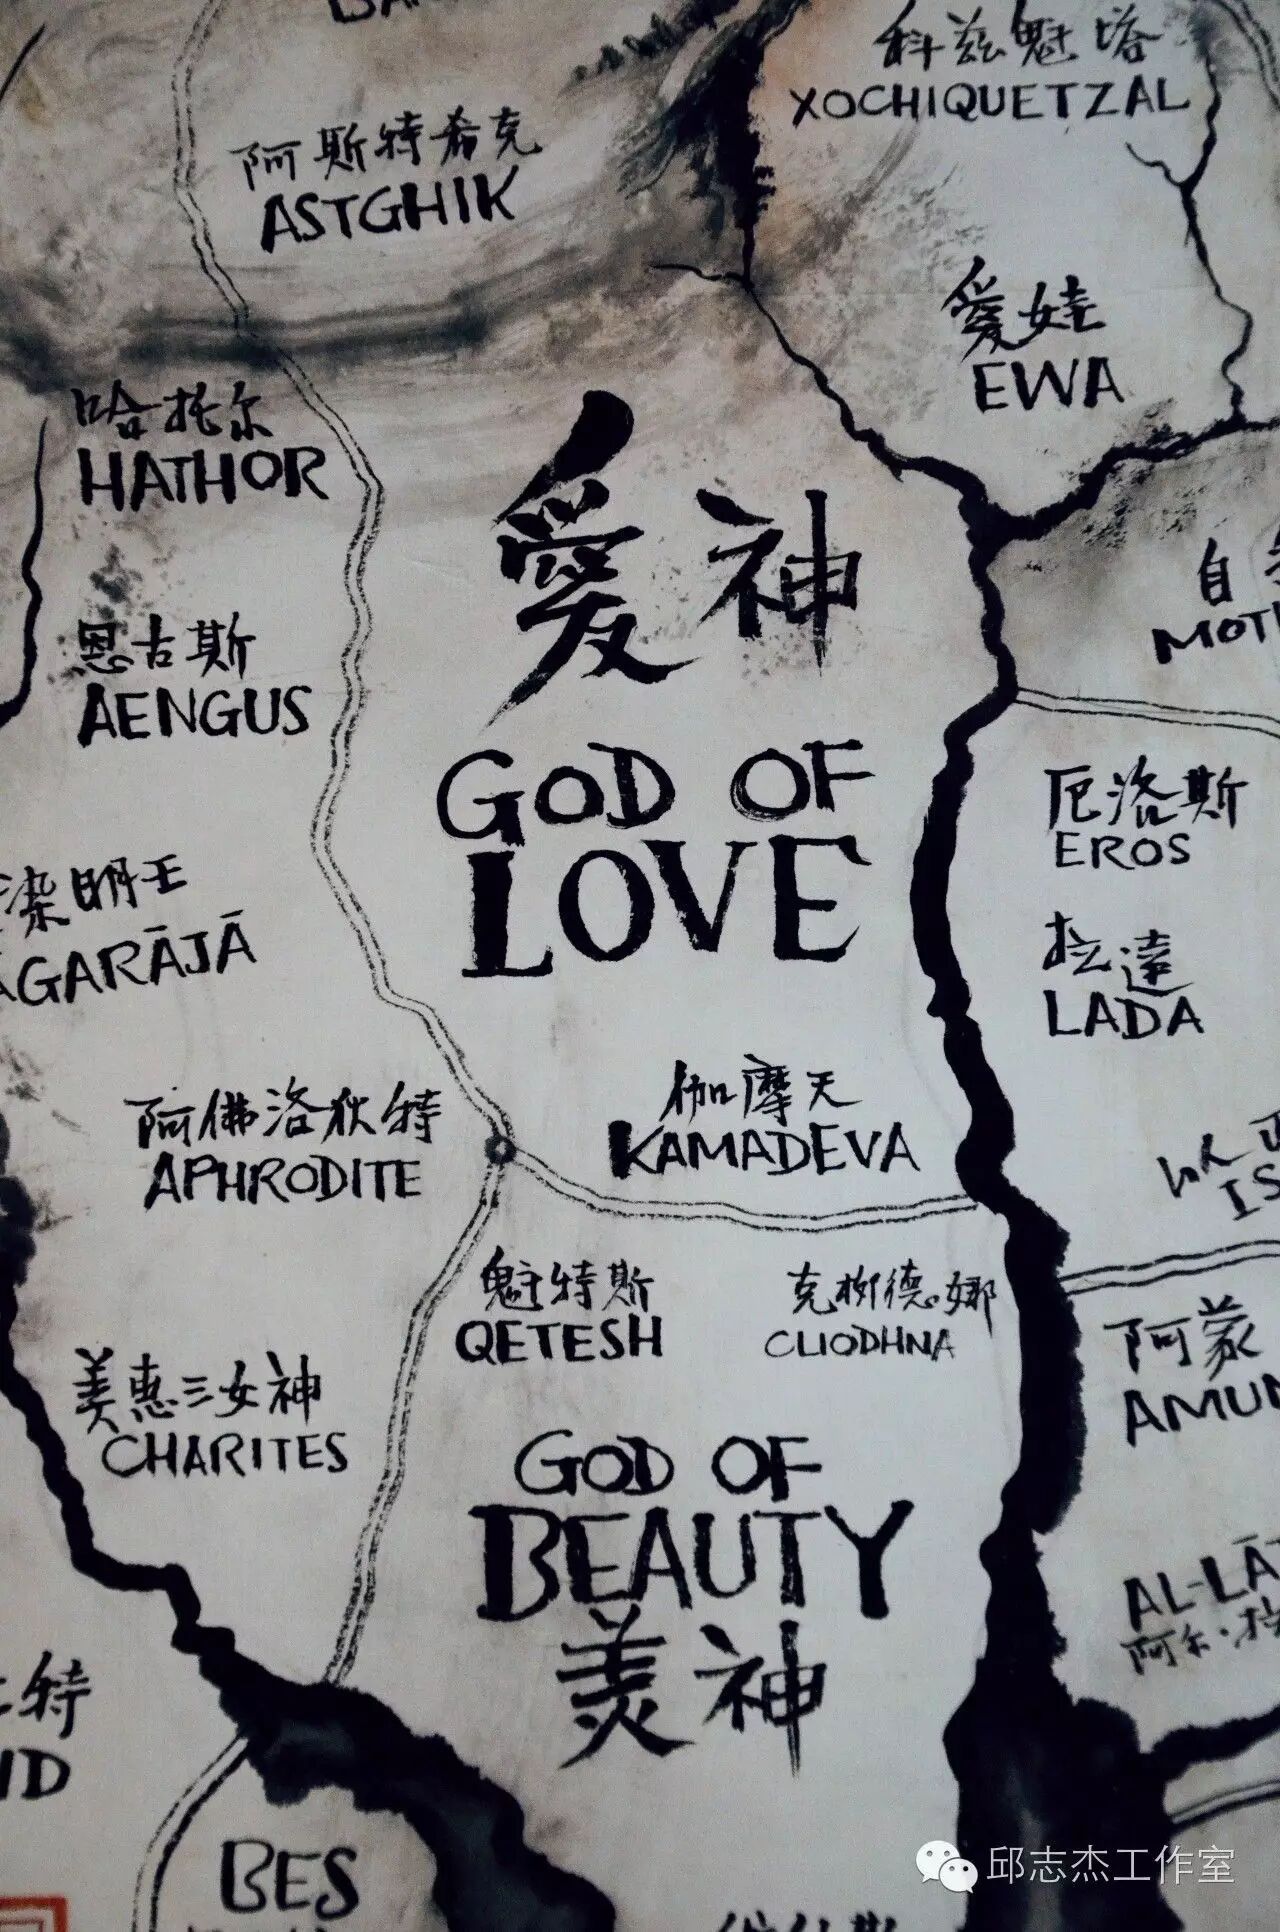 科兹魁塔
XOCHIQUETZAL
阿斯特希克
ASTGHIK
爱娃
EWA
哈托尔
HATHOR
愛神
GOD OF
LOVE
恩古斯
AENGUS
自
MOT
厄洛斯
EROS
染明王
GARĀJĀ
拉達
LADA
伽摩天
KAMADEVA
阿佛洛狄特
APHRODITE
IS
魁特斯
QETESH
克柳德娜
CLIODHNA
阿蒙
AMUN
美惠三女神
CHARITES
GOD OF
BEAUTY
美神
AL-LĀ
阿尔·拉
特
ID
BES
邱志杰工作室